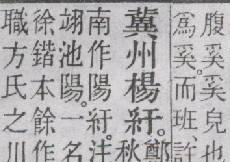 腹奚。奚兒也
爲奚。而班、許
冀州楊紆。鄭
秋
南作陽紆。注
翊池陽。一名
徐鍇本餘作
職方氏之川